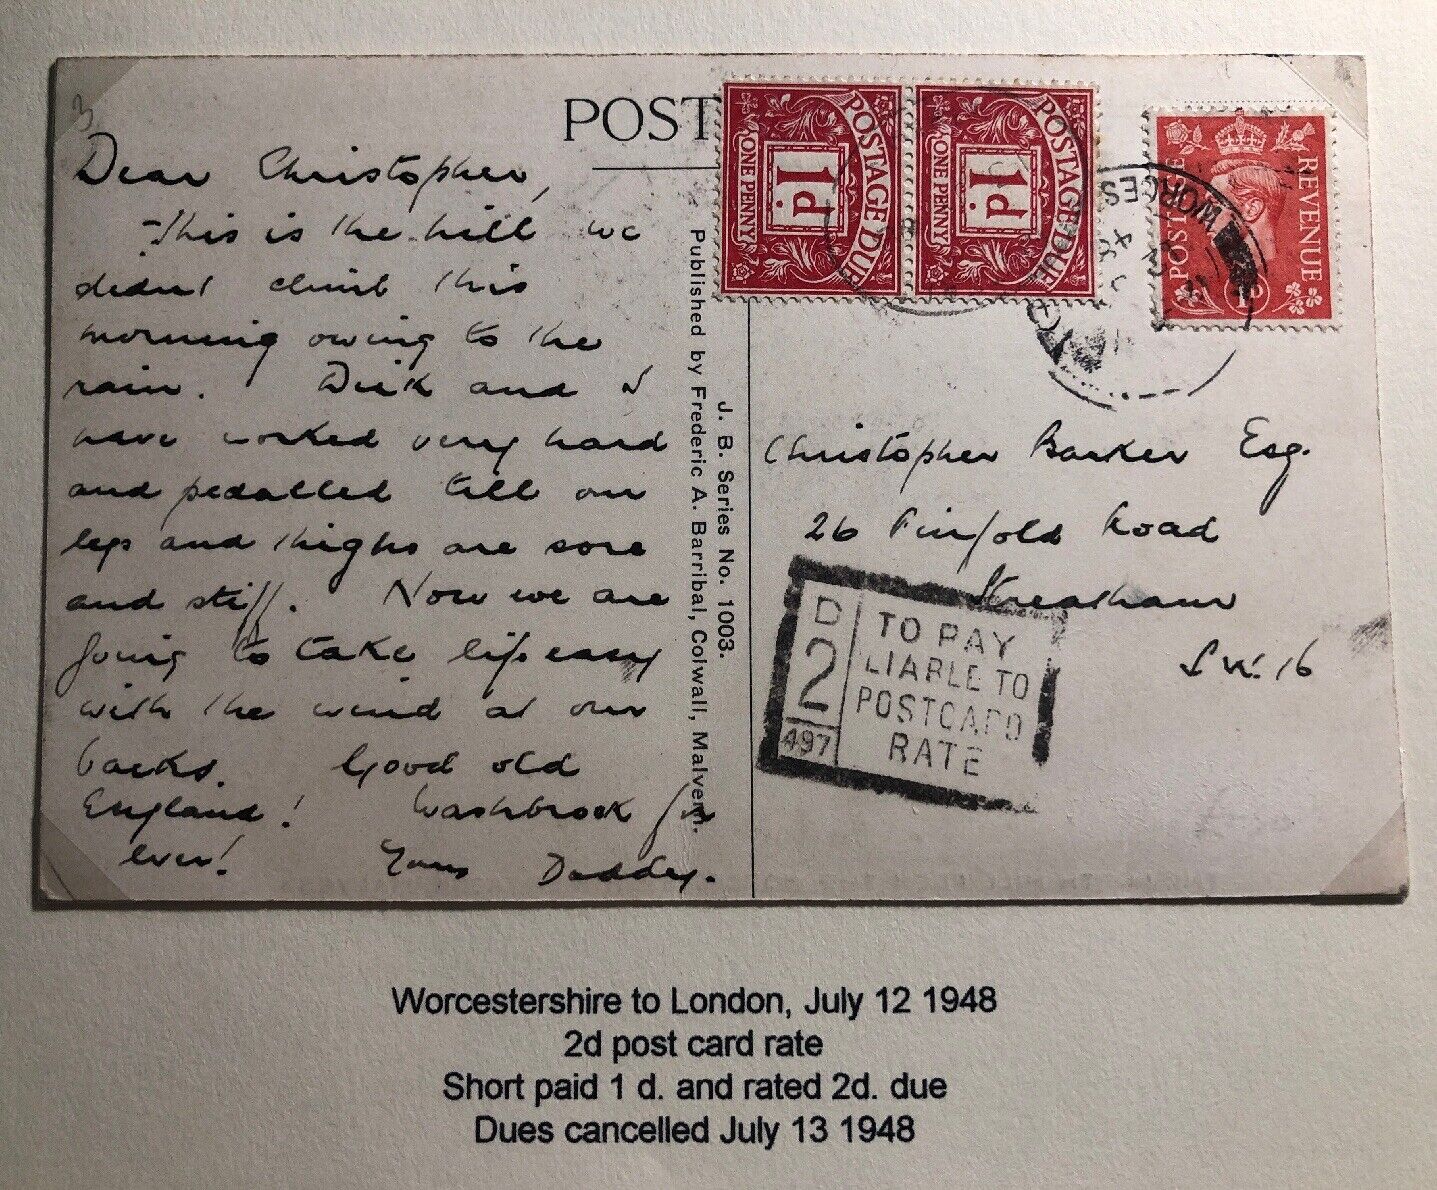 3
POST
Dear Christopher,
This is the hill we
didn't climb this
morning owing to the
rain. Dick and I
have worked very hard
and pedalled till our
legs and thighs are sore
and stiff. Now we are
going to take life easy
with the wind at our
backs. Good old
England! Washbrook for
ever!
Yours Daddy.
J. B. Series No. 1003.
Published by Frederic A. Barribal, Colwall, Malvern.
POSTAGE DUE
1d
ONE PENNY
POSTAGE DUE
1d
ONE PENNY
POSTAGE
REVENUE
1D
WORCES
Christopher Barker Esq.
26 Pinfold Road
Streatham
S.W. 16
D
2
497
TO PAY
LIABLE TO
POSTCARD
RATE
Worcestershire to London, July 12 1948
2d post card rate
Short paid 1 d. and rated 2d. due
Dues cancelled July 13 1948